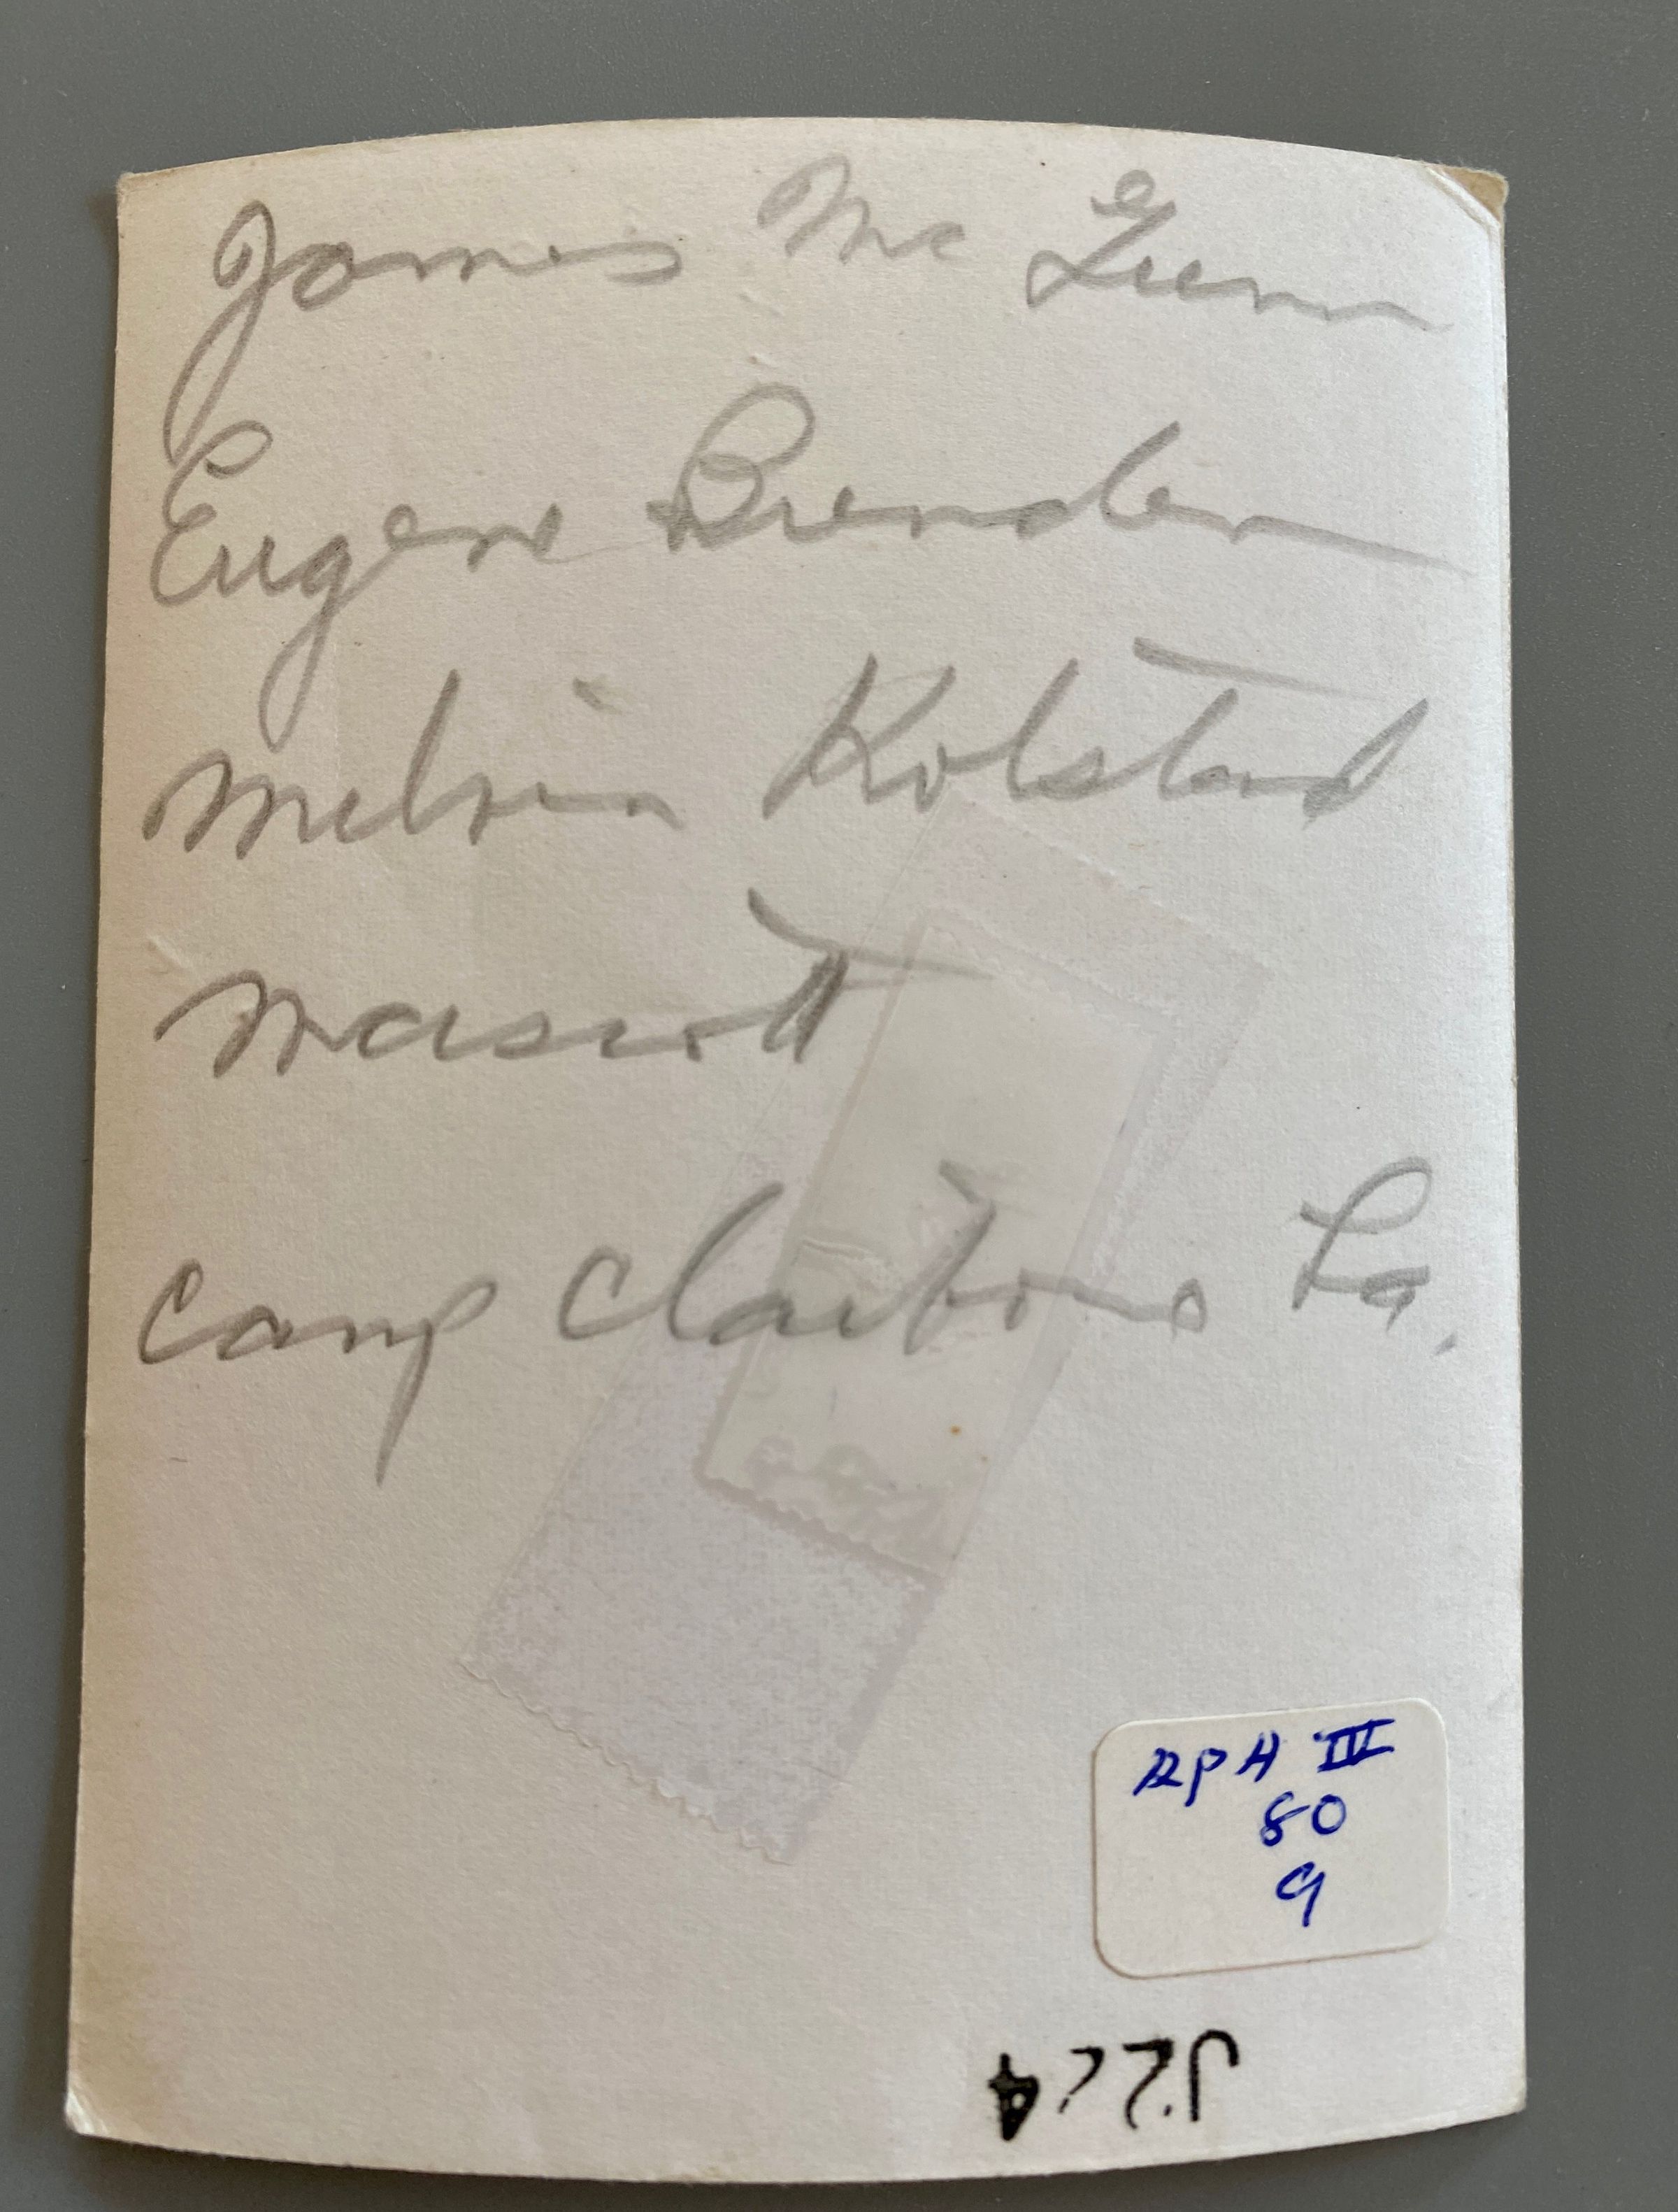 James Mc Gunn
Eugene Brenden
Melvin Kolstad
Mascott
Camp Claiborne La.
III
80
9